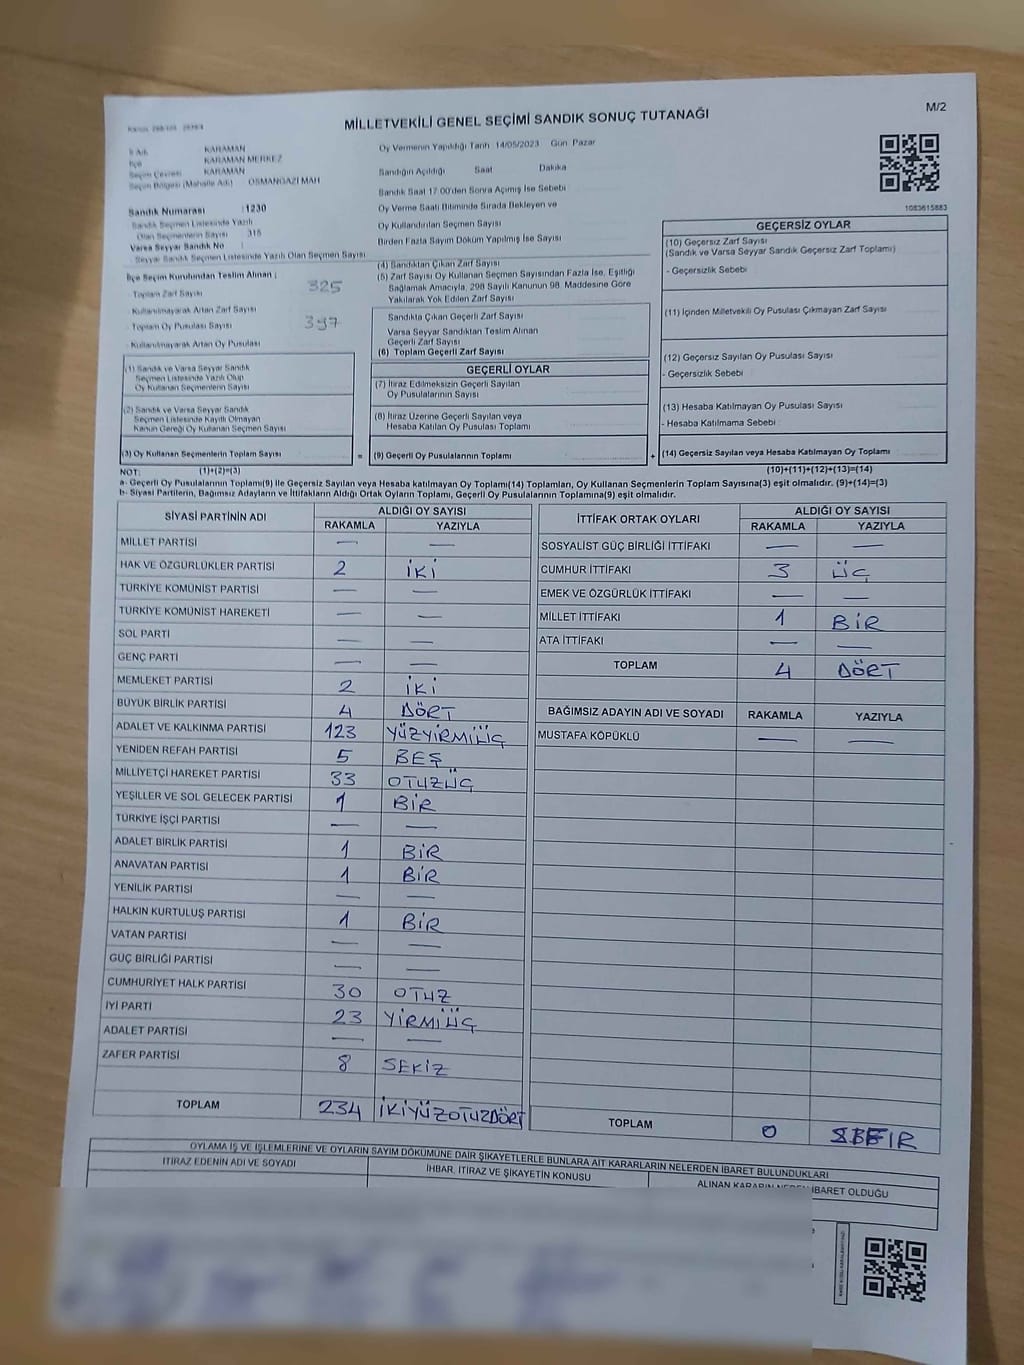 M/2
MİLLETVEKİLİ GENEL SEÇİMİ SANDIK SONUÇ TUTANAĞI
İl Adı KARAMAN
İlçe KARAMAN MERKEZ
Seçim Çevresi KARAMAN
Seçim Bölgesi (Mahalle Adı) OSMANGAZİ MAH
Sandık Numarası : 1230
Sandık Seçmen Listesinde Yazılı
Olan Seçmenlerin Sayısı 315
Varsa Seyyar Sandık No :
- Seyyar Sandık Seçmen Listesinde Yazılı Olan Seçmen Sayısı
İlçe Seçim Kurulundan Teslim Alınan ;
- Toplam Zarf Sayısı 325
- Kullanılmayarak Artan Zarf Sayısı
- Toplam Oy Pusulası Sayısı 397
- Kullanılmayarak Artan Oy Pusulası
(1) Sandık ve Varsa Seyyar Sandık
Seçmen Listesinde Yazılı Olup
Oy Kullanan Seçmenlerin Sayısı
(2) Sandık ve Varsa Seyyar Sandık
Seçmen Listesinde Kayıtlı Olmayan
Kanun Gereği Oy Kullanan Seçmen Sayısı
(3) Oy Kullanan Seçmenlerin Toplam Sayısı =
Oy Vermenin Yapıldığı Tarih 14/05/2023 Gün Pazar
Sandığın Açıldığı Saat Dakika
Sandık Saat 17:00'den Sonra Açılmış İse Sebebi
Oy Verme Saati Bitiminde Sırada Bekleyen ve
Oy Kullandırılan Seçmen Sayısı
Birden Fazla Sayım Döküm Yapılmış İse Sayısı
(4) Sandıktan Çıkan Zarf Sayısı
(5) Zarf Sayısı Oy Kullanan Seçmen Sayısından Fazla İse, Eşitliği
Sağlamak Amacıyla, 298 Sayılı Kanunun 98. Maddesine Göre
Yakılarak Yok Edilen Zarf Sayısı
Sandıkta Çıkan Geçerli Zarf Sayısı
Varsa Seyyar Sandıktan Teslim Alınan
Geçerli Zarf Sayısı
(6) Toplam Geçerli Zarf Sayısı
GEÇERLİ OYLAR
(7) İtiraz Edilmeksizin Geçerli Sayılan
Oy Pusulalarının Sayısı
(8) İtiraz Üzerine Geçerli Sayılan veya
Hesaba Katılan Oy Pusulası Toplamı
(9) Geçerli Oy Pusulalarının Toplamı +
1083615883
GEÇERSİZ OYLAR
(10) Geçersiz Zarf Sayısı
(Sandık ve Varsa Seyyar Sandık Geçersiz Zarf Toplamı)
- Geçersizlik Sebebi
(11) İçinden Milletvekili Oy Pusulası Çıkmayan Zarf Sayısı
(12) Geçersiz Sayılan Oy Pusulası Sayısı
- Geçersizlik Sebebi
(13) Hesaba Katılmayan Oy Pusulası Sayısı
- Hesaba Katılmama Sebebi
(14) Geçersiz Sayılan veya Hesaba Katılmayan Oy Toplamı
NOT: (1)+(2)=(3) (10)+(11)+(12)+(13)=(14)
a- Geçerli Oy Pusulalarının Toplamı(9) ile Geçersiz Sayılan veya Hesaba katılmayan Oy Toplamı(14) Toplamları, Oy Kullanan Seçmenlerin Toplam Sayısına(3) eşit olmalıdır. (9)+(14)=(3)
b- Siyasi Partilerin, Bağımsız Adayların ve İttifakların Aldığı Ortak Oyların Toplamı, Geçerli Oy Pusulalarının Toplamına(9) eşit olmalıdır.
SİYASİ PARTİNİN ADI ALDIĞI OY SAYISI
RAKAMLA YAZIYLA
MİLLET PARTİSİ — —
HAK VE ÖZGÜRLÜKLER PARTİSİ 2 İKİ
TÜRKİYE KOMÜNİST PARTİSİ — —
TÜRKİYE KOMÜNİST HAREKETİ — —
SOL PARTİ — —
GENÇ PARTİ — —
MEMLEKET PARTİSİ 2 İKİ
BÜYÜK BİRLİK PARTİSİ 4 DÖRT
ADALET VE KALKINMA PARTİSİ 123 YÜZYİRMİÜÇ
YENİDEN REFAH PARTİSİ 5 BEŞ
MİLLİYETÇİ HAREKET PARTİSİ 33 OTUZÜÇ
YEŞİLLER VE SOL GELECEK PARTİSİ 1 BİR
TÜRKİYE İŞÇİ PARTİSİ — —
ADALET BİRLİK PARTİSİ 1 BİR
ANAVATAN PARTİSİ 1 BİR
YENİLİK PARTİSİ — —
HALKIN KURTULUŞ PARTİSİ 1 BİR
VATAN PARTİSİ — —
GÜÇ BİRLİĞİ PARTİSİ — —
CUMHURİYET HALK PARTİSİ 30 OTUZ
İYİ PARTİ 23 YİRMİÜÇ
ADALET PARTİSİ — —
ZAFER PARTİSİ 8 SEKİZ
TOPLAM 234 İKİYÜZOTUZDÖRT
İTTİFAK ORTAK OYLARI ALDIĞI OY SAYISI
RAKAMLA YAZIYLA
SOSYALİST GÜÇ BİRLİĞİ İTTİFAKI — —
CUMHUR İTTİFAKI 3 ÜÇ
EMEK VE ÖZGÜRLÜK İTTİFAKI — —
MİLLET İTTİFAKI 1 BİR
ATA İTTİFAKI — —
TOPLAM 4 DÖRT
BAĞIMSIZ ADAYIN ADI VE SOYADI RAKAMLA YAZIYLA
MUSTAFA KÖPÜKLÜ — —
TOPLAM 0
OYLAMA İŞ VE İŞLEMLERİNE VE OYLARIN SAYIM DÖKÜMÜNE DAİR ŞİKAYETLERLE BUNLARA AİT KARARLARIN NELERDEN İBARET BULUNDUKLARI
İTİRAZ EDENİN ADI VE SOYADI İHBAR, İTİRAZ VE ŞİKAYETİN KONUSU ALINAN KARARIN NEDEN İBARET OLDUĞU